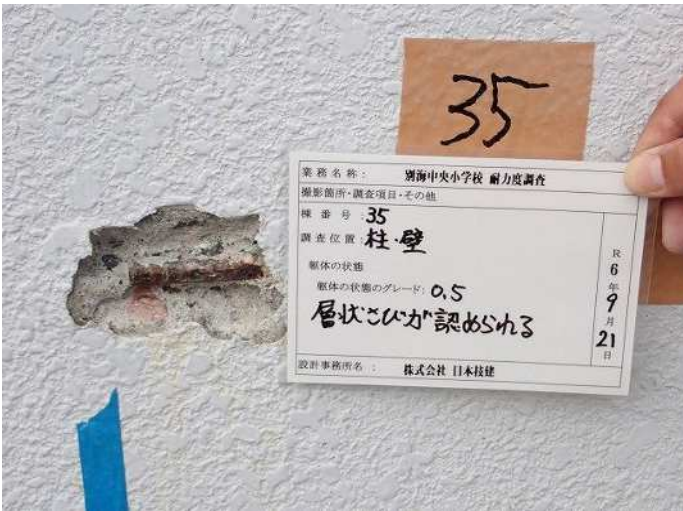 35
業務名称： 別海中央小学校 耐力度調査
撮影箇所・調査項目・その他
棟番号：35
調査位置：柱・壁
躯体の状態
躯体の状態のグレード：0.5
層状さびが認められる
R6年9月21日
設計事務所名： 株式会社 日本技建